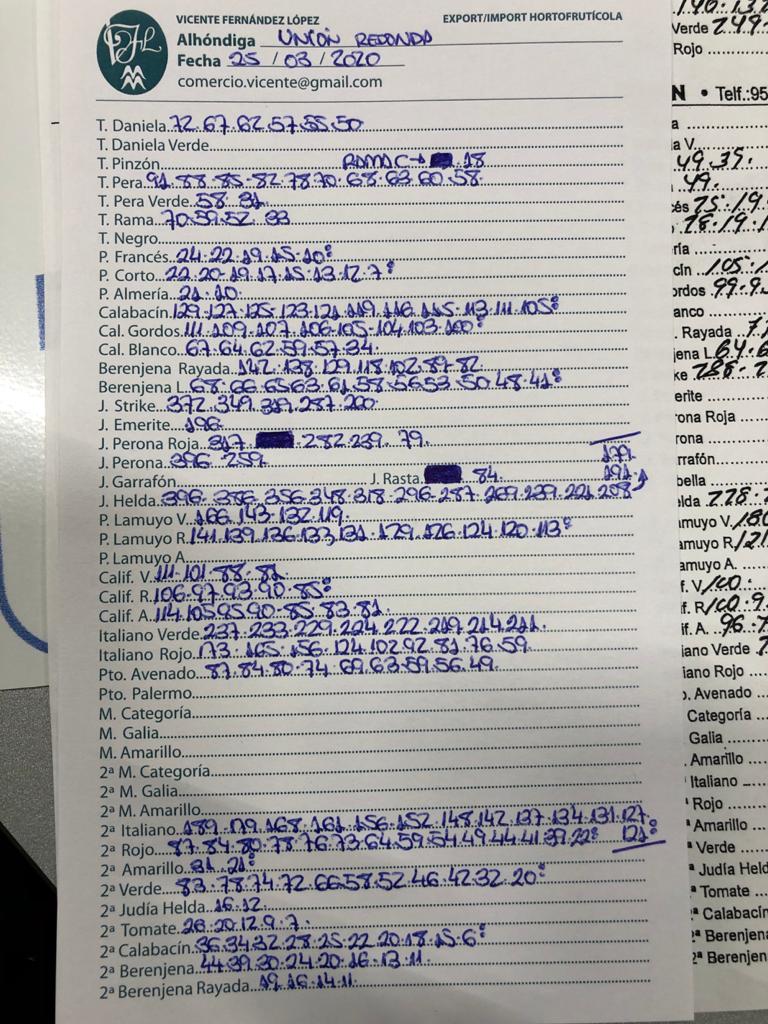 VICENTE FERNÁNDEZ LÓPEZ EXPORT/IMPORT HORTOFRUTÍCOLA
Alhóndiga UNIÓN REDONDA
Fecha 25 / 03 / 2020
comercio.vicente@gmail.com
T. Daniela 72.67.62.57.55.50
T. Daniela Verde
T. Pinzón RAMA C→ 18
T. Pera 91.88.85.82.78.70.68.63.60.58
T. Pera Verde 58.31
T. Rama 70.59.52.33
T. Negro
P. Francés 24.22.19.15.10
P. Corto 22.20.19.17.15.13.12.7
P. Almería 21.10
Calabacín 129.127.125.123.121.119.116.115.113.111.105
Cal. Gordos 111.109.107.106.105.104.103.100
Cal. Blanco 67.64.62.59.57.34
Berenjena Rayada 142.138.129.118.102.89.82
Berenjena L. 68.66.65.63.61.58.56.53.50.48.41
J. Strike 372.349.319.287.200
J. Emerite 196
J. Perona Roja 317 . 282.239.79.
J. Perona 396.259 179
J. Garrafón J. Rasta 84 191
J. Helda 396.386.356.348.318.296.287.269.239.221.208
P. Lamuyo V. 166.143.132.119
P. Lamuyo R. 141.139.136.133.131.129.126.124.120.113
P. Lamuyo A.
Calif. V. 111.101.88.81
Calif. R. 106.97.93.90.85
Calif. A. 114.105.95.90.85.83.81
Italiano Verde 237.233.229.224.222.219.214.211
Italiano Rojo 173.165.156.124.102.92.81.76.59
Pto. Avenado 87.84.80.74.69.63.59.56.49
Pto. Palermo
M. Categoría
M. Galia
M. Amarillo
2ª M. Categoría
2ª M. Galia
2ª M. Amarillo
2ª Italiano 189.179.168.161.156.152.148.142.137.134.131.127
2ª Rojo 87.84.80.78.76.73.64.59.54.49.44.41.39.22 121
2ª Amarillo 31.21
2ª Verde 83.78.74.72.66.58.52.46.42.32.20
2ª Judía Helda 16.12
2ª Tomate 26.20.12.9.7
2ª Calabacín 36.34.32.28.25.22.20.18.15.6
2ª Berenjena 44.39.30.24.20.16.13.11
2ª Berenjena Rayada 19.16.14.11
Verde 249
Rojo
N • Telf.:95
V.
49.35.
49.
75.19
78.19.1
105
99.9
anco
. Rayada
64.6
erite
ona Roja
rona
rrafón
bella
228
amuyo V. 180
amuyo R. 121
amuyo A.
f. V. 100
if. R. 100.9
if. A. 96
iano Verde
iano Rojo
. Avenado
Categoría
Galia
Amarillo
Italiano
Rojo
ª Amarillo
ª Verde
ª Judía Held
ª Tomate
ª Calabacín
2ª Berenjena
2ª Berenjena